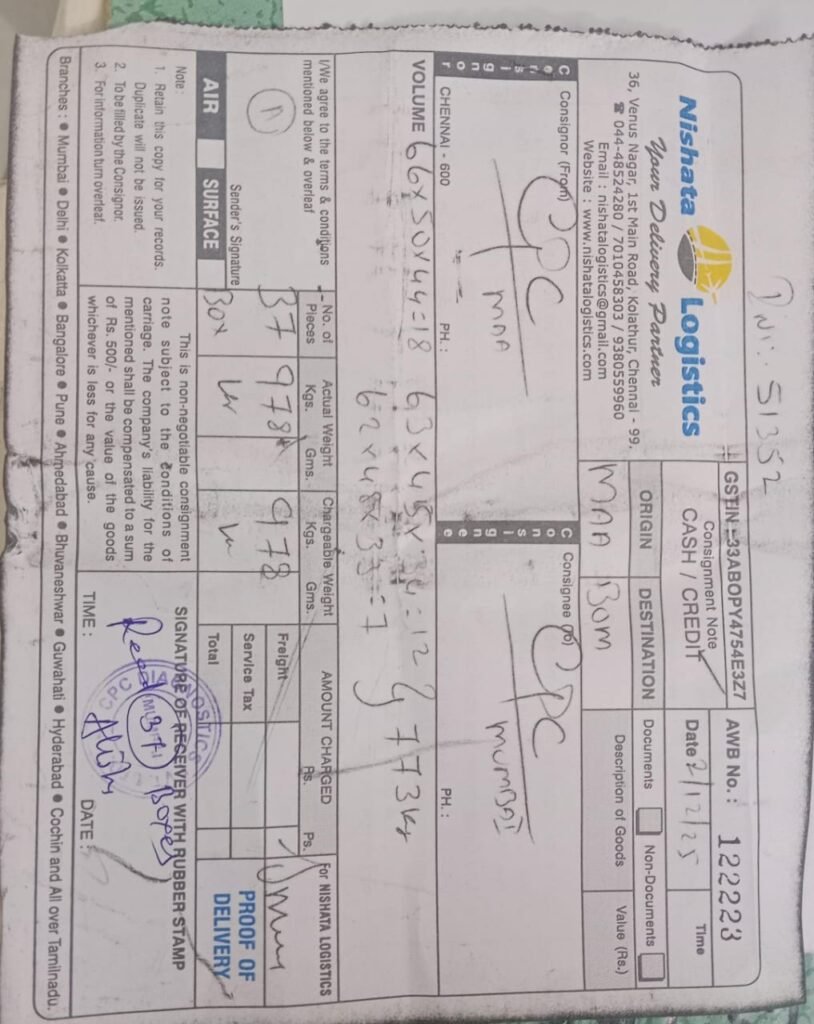 DNI:- 51352
Nishata Logistics
Your Delivery Partner
36, Venus Nagar, 1st Main Road, Kolathur, Chennai - 99.
☎ 044-48524280 / 7010458303 / 9380559960
Email : nishatalogistics@gmail.com
Website : www.nishatalogistics.com
GSTIN : 33ABOPY4754E3Z7
Consignment Note
CASH / CREDIT
AWB No. : 122223
Date 2/12/25
Time
ORIGIN
MAA
DESTINATION
BOM
Documents
Non-Documents
Description of Goods
Value (Rs.)
Consignor
Consignor (From)
CPC
MAA
CHENNAI - 600
PH. :
Consignee
Consignee (To)
CPC
MUMBAI
PH. :
VOLUME 66x50x44=18 63x45x34=12
62x48x37=7
773kg
I/We agree to the terms & conditions
mentioned below & overleaf
Sender's Signature
AIR
SURFACE
No. of
Pieces
37
Box
Actual Weight
Kgs. Gms.
978
Chargeable Weight
Kgs. Gms.
978
AMOUNT CHARGED
Rs. Ps.
Freight
Service Tax
Total
For NISHATA LOGISTICS
PROOF OF
DELIVERY
Note :
1. Retain this copy for your records.
Duplicate will not be issued.
2. To be filled by the Consignor.
3. For information turn overleaf.
This is non-negotiable consignment
note subject to the conditions of
carriage. The company's liability for the
mentioned shall be compensated to a sum
of Rs. 500/- or the value of the goods
whichever is less for any cause.
SIGNATURE OF RECEIVER WITH RUBBER STAMP
Recd 37 Boxes
CPC DIAGNOSTICS
TIME :
DATE :
Branches : ● Mumbai ● Delhi ● Kolkatta ● Bangalore ● Pune ● Ahmedabad ● Bhuvaneshwar ● Guwahati ● Hyderabad ● Cochin and All over Tamilnadu.